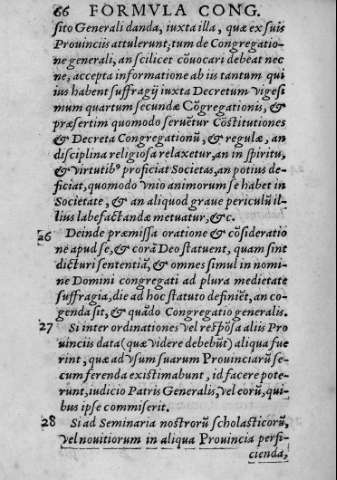 66 FORMVLA CONG.
sito Generali danda, iuxta illa, quæ ex suis
Prouinciis attulerunt, tum de Congregatio-
ne generali, an scilicet cõuocari debeat nec
ne, accepta informatione ab iis tantum qui
ius habent suffragij iuxta Decretum vigesi
mum quartum secundæ Cõgregationis, &
præsertim quomodo seruẽtur Cõstitutiones
& Decreta Congregationũ, & regulæ, an
disciplina religiosa relaxetur, an in spiritu,
& virtutibꝰ proficiat Societas, an potius de-
ficiat, quomodo vnio animorum se habet in
Societate, & an aliquod graue periculũ il-
lius labefactandæ metuatur, & c.
26 Deinde præmissa oratione & cõsideratio
ne apud se, & corã Deo statuent, quam sint
dicturi sententiã, & omnes simul in nomi-
ne Domini congregati ad plura medietate
suffragia, die ad hoc statuto definiẽt, an co-
genda sit, & quãdo Congregatio generalis.
27 Si inter ordinationes vel respõsa aliis Pro
uinciis data (quæ videre debebũt) aliqua fue
rint, quæ ad vsum suarum Prouinciarũ se-
cum ferenda existimabunt, id facere pote-
runt, iudicio Patris Generalis, vel eorũ, qui-
bus ipse commiserit.
28 Si ad Seminaria nostrorũ scholasticorũ,
vel nouitiorum in aliqua Prouincia perfi-
cienda,